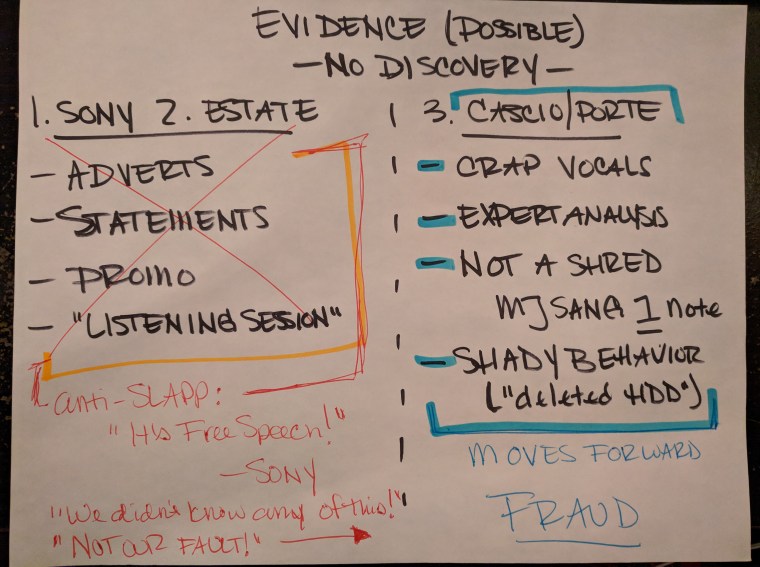 EVIDENCE (POSSIBLE)
— NO DISCOVERY —
1. SONY 2. ESTATE
- ADVERTS
- STATEMENTS
- PROMO
- "LISTENING SESSION"
anti-SLAPP:
"It's Free Speech!"
— SONY
"We didn't know any of this!"
"NOT OUR FAULT!"
3. CASCIO/PORTE
- CRAP VOCALS
- EXPERT ANALYSIS
- NOT A SHRED
MJ SANG 1 note
- SHADY BEHAVIOR
("deleted HDD")
MOVES FORWARD
FRAUD